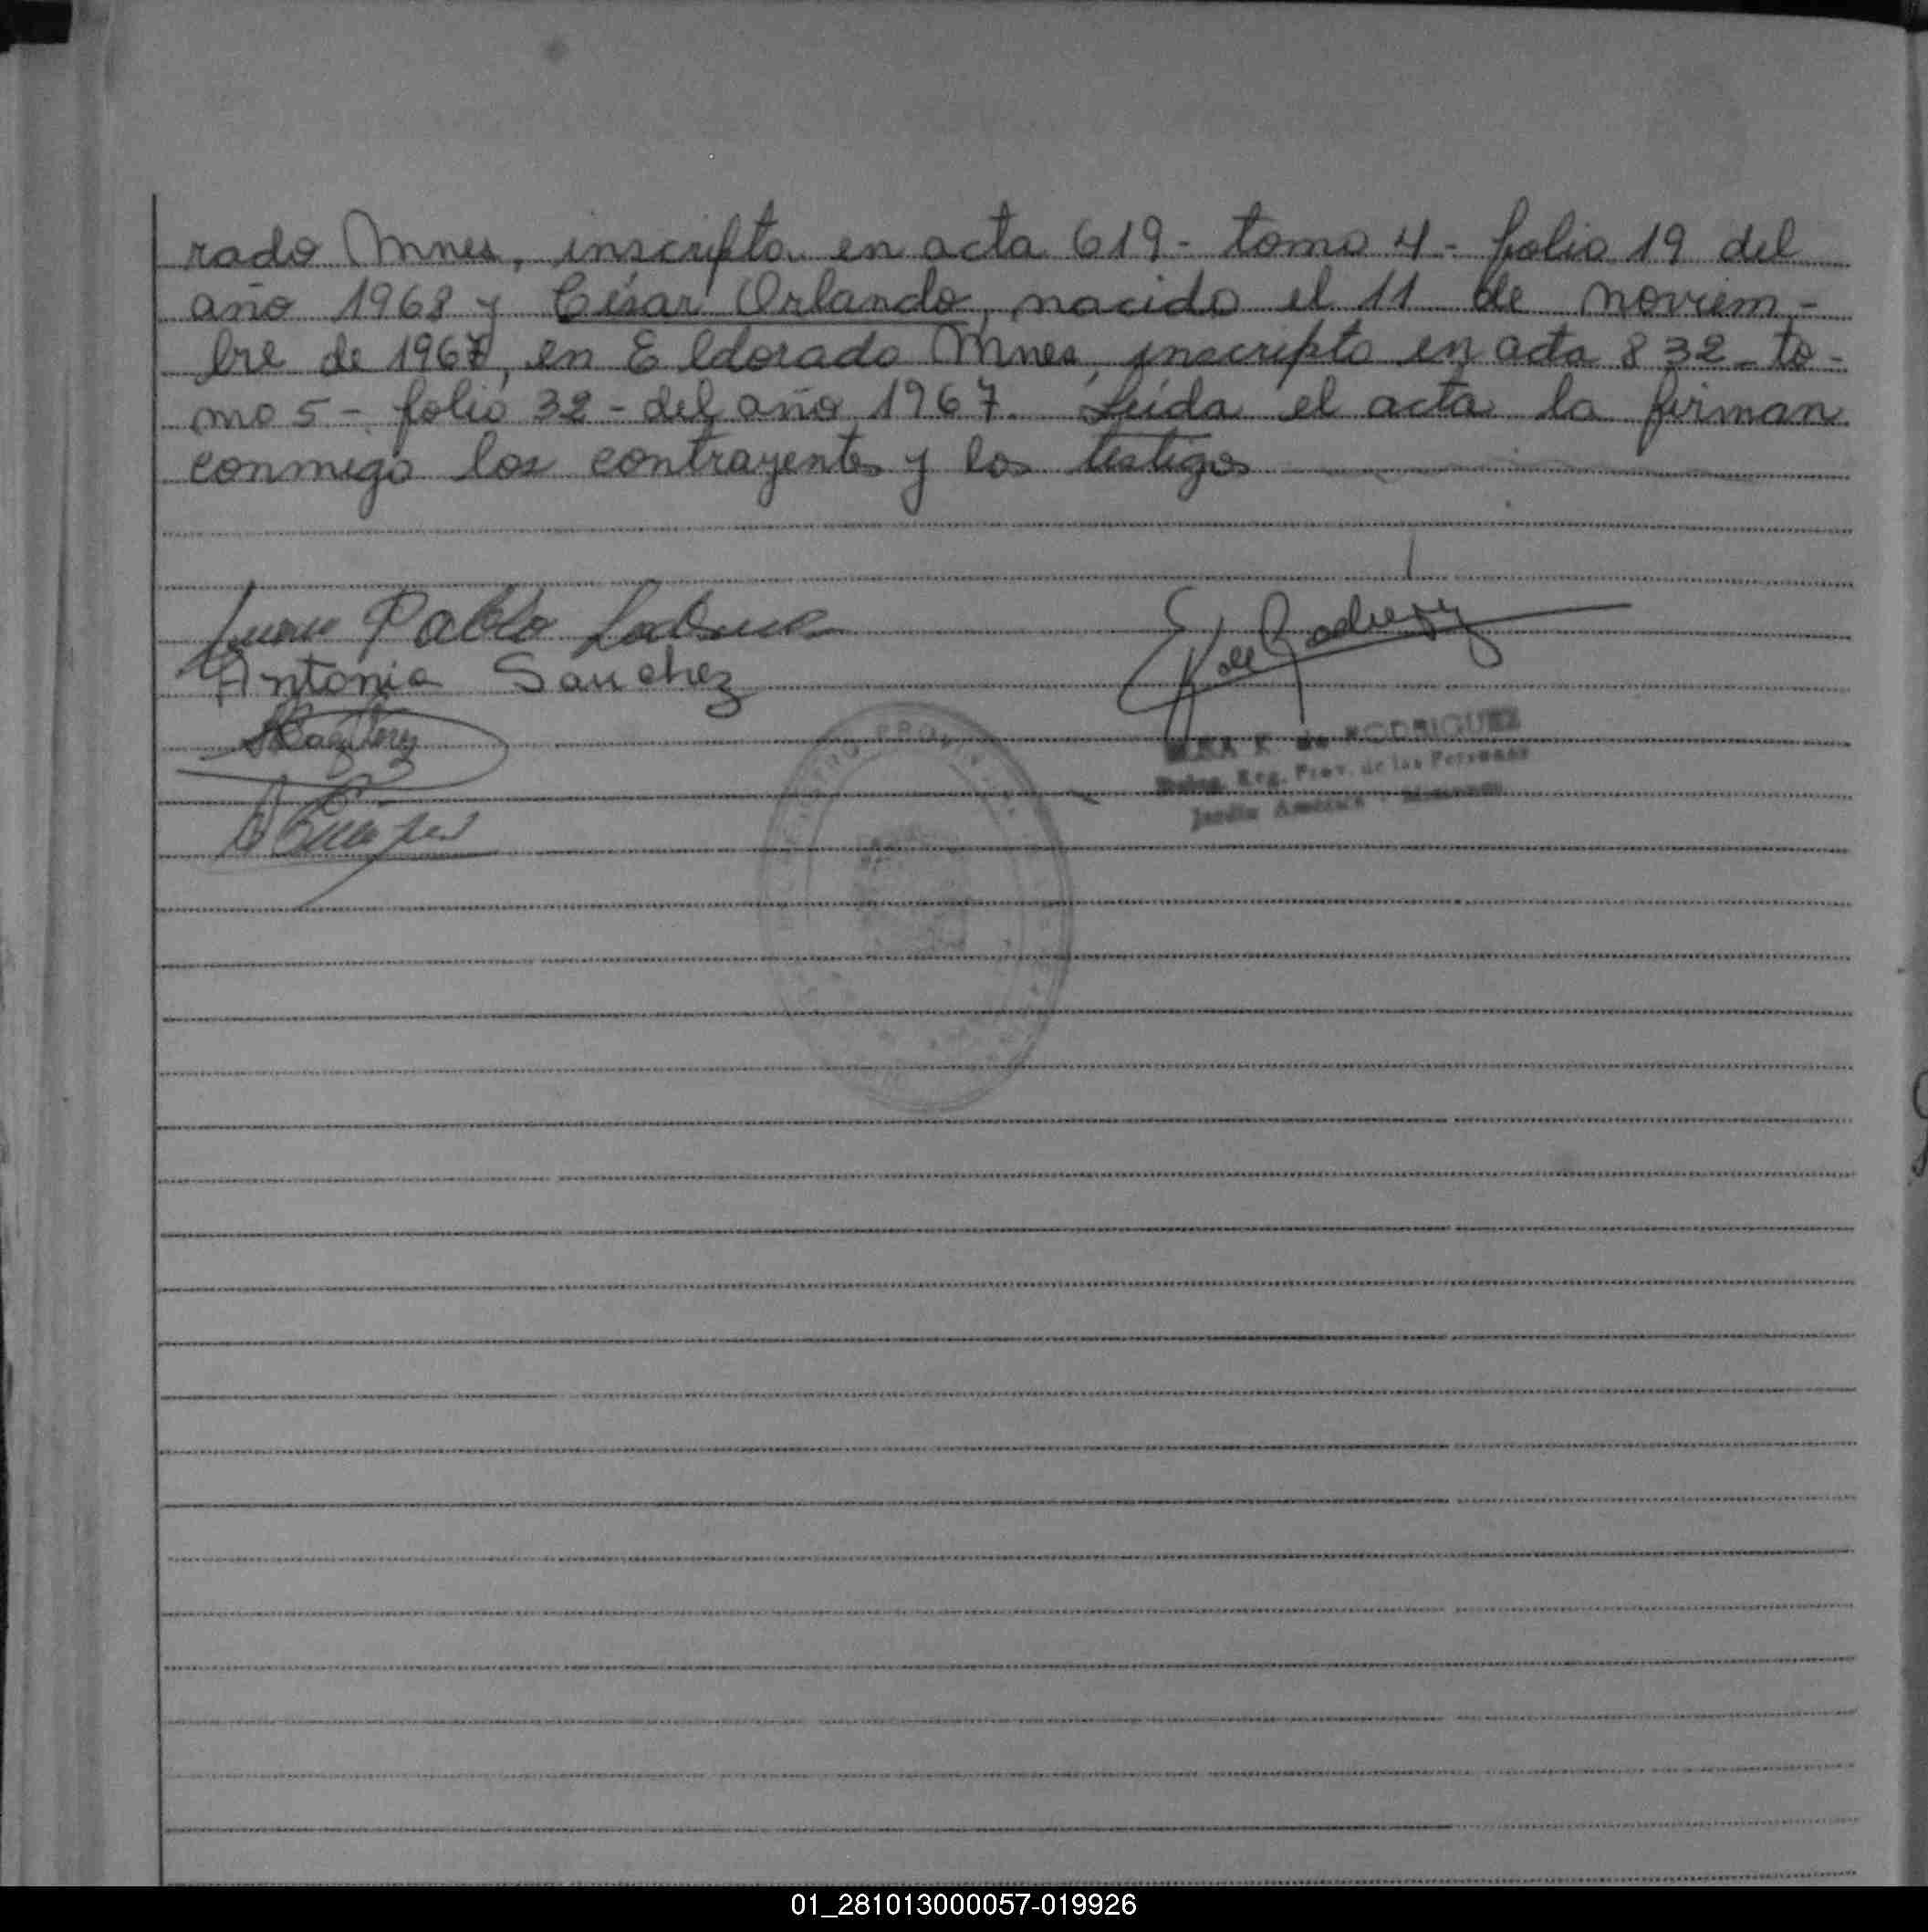 rado Mnes, inscripta en acta 619 - tomo 4 - folio 19 del
año 1968 y César Orlando, nacido el 11 de noviem-
bre de 1967, en Eldorado Mnes, inscripto en acta 832 - to-
mo 5 - folio 32 - del año 1967. Leída el acta la firman
conmigo los contrayentes y los testigos
Juan Pablo
Antonia Sanchez
K de Rodriguez
K de RODRIGUEZ
Reg. Prov. de las Personas
Jardín América - Misiones
REGISTRO PROVINCIAL
01_281013000057-019926